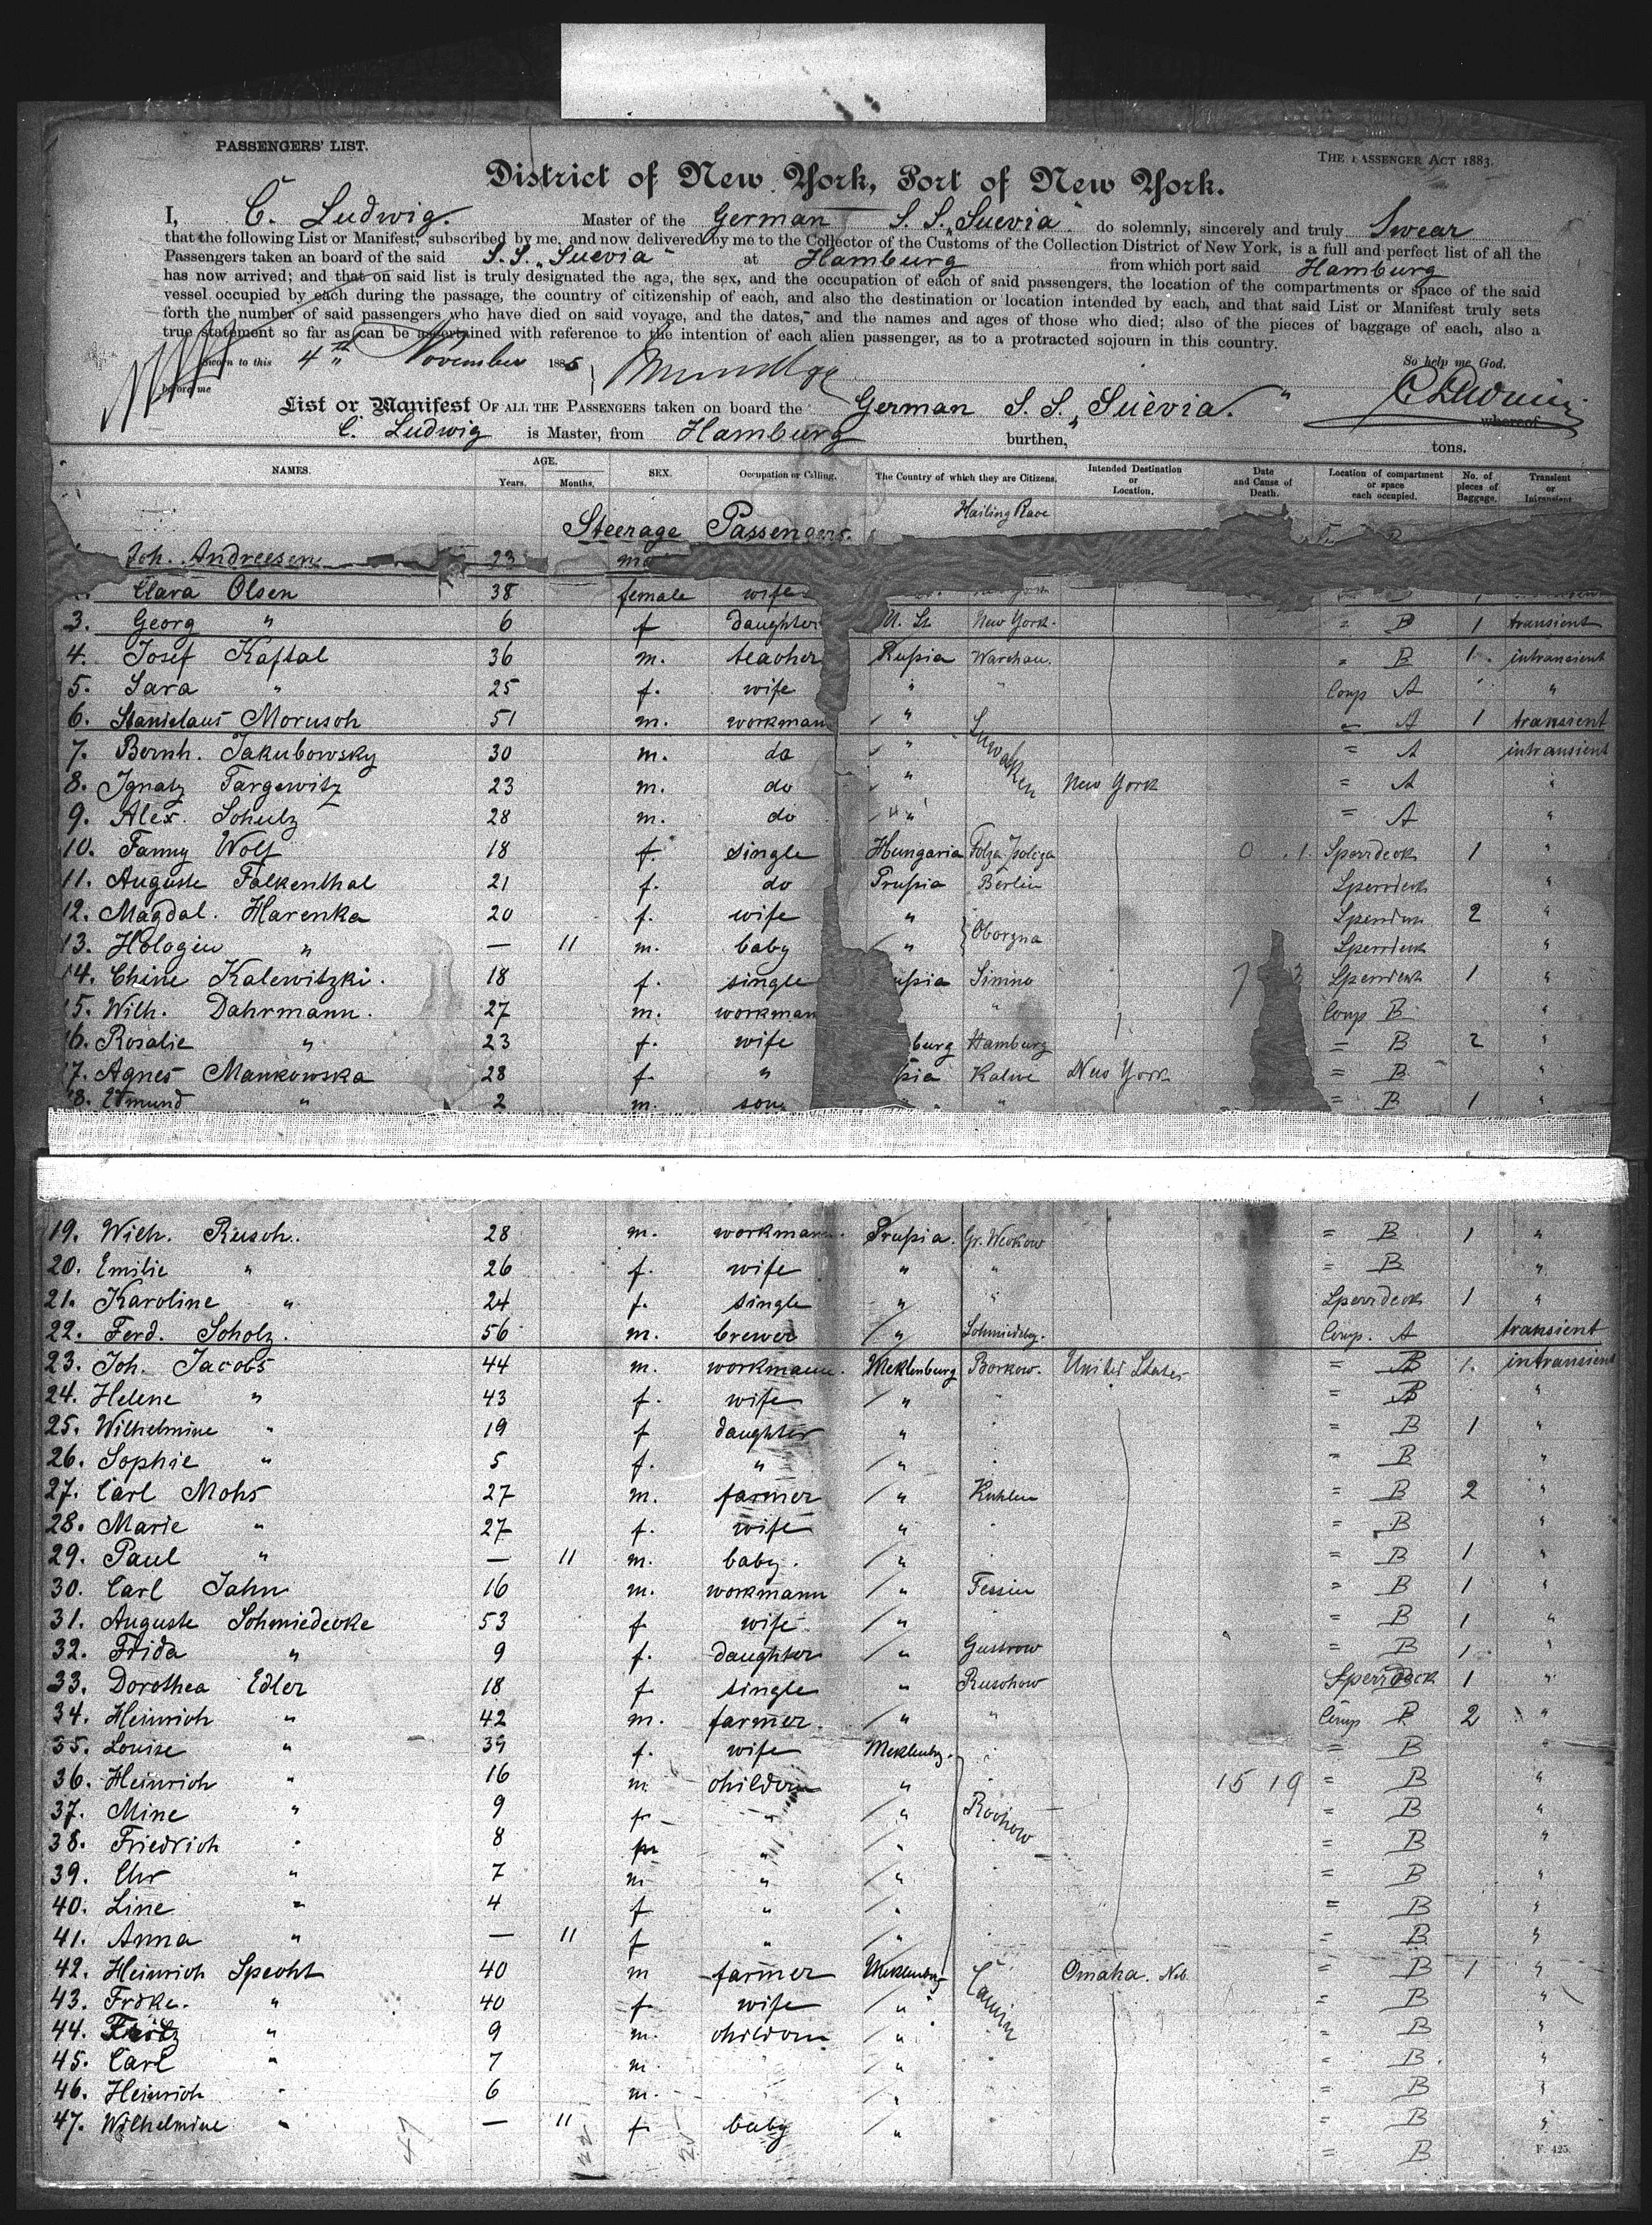 PASSENGERS' LIST.
THE PASSENGER ACT 1883.
District of New York, Port of New York.
I, C. Ludwig. Master of the German S. S. „Suevia" do solemnly, sincerely and truly Swear
that the following List or Manifest, subscribed by me, and now delivered by me to the Collector of the Customs of the Collection District of New York, is a full and perfect list of all the
Passengers taken on board of the said S.S. „Suevia" at Hamburg from which port said Hamburg
has now arrived; and that on said list is truly designated the age, the sex, and the occupation of each of said passengers, the location of the compartments or space of the said
vessel occupied by each during the passage, the country of citizenship of each, and also the destination or location intended by each, and that said List or Manifest truly sets
forth the number of said passengers who have died on said voyage, and the dates, and the names and ages of those who died; also of the pieces of baggage of each, also a
true statement so far as can be ascertained with reference to the intention of each alien passenger, as to a protracted sojourn in this country.
Sworn to this 4th November 1885 So help me God.
before me
List or Manifest OF ALL THE PASSENGERS taken on board the German S. S. „Suevia." whereof
C. Ludwig is Master, from Hamburg burthen, tons.
NAMES. AGE. Years. Months. SEX. Occupation or Calling. The Country of which they are Citizens. Intended Destination or Location. Date and Cause of Death. Location of compartment or space each occupied. No. of pieces of Baggage. Transient or Intransient
Hailing Place
Steerage Passengers.
Joh. Andreesen 23
Clara Olsen 38 female wife
3. Georg " 6 f daughter U. St. New York. = B 1 transient
4. Josef Kaftal 36 m. teacher Russia Warchau. " B 1. intransient
5. Sara " 25 f. wife " " Coup A "
6. Stanislaus Morusch 51 m. workmann " = A 1 transient
7. Bernh. Jakubowsky 30 m. do " Suwalken = A intransient
8. Ignatz Targewitz 23 m. do " New York = A "
9. Alex. Schulz 28 m. do " = A "
10. Fanny Wolf 18 f. single Hungaria Sperrdeck 1 "
11. Auguste Falkenthal 21 f. do Prussia Berlin Sperrdeck "
12. Magdal. Harenka 20 f. wife " Sperrdeck 2 "
13. " — 11 m. baby " Sperrdeck "
14. Chine Kalewitzki. 18 f. single Simno Sperrdeck 1 "
15. Wilh. Dahrmann. 27 m. workman " Coup B "
16. Rosalie " 23 f. wife burg Hamburg = B 2 "
17. Agnes Mankowska 28 f. " New York = B "
18. Edmund " 2 m. son " = B 1 "
19. Wilh. Rusch. 28 m. workmann. Prussia. Gr. Weckow = B 1 "
20. Emilie " 26 f. wife " " = B "
21. Karoline " 24 f. single " " Sperrdeck 1 "
22. Ferd. Scholz. 56 m. brewer " Schmiedebg. Coup. A transient
23. Joh. Jacobs 44 m. workmann. Meklenburg Borkow. United States = B 1. intransient
24. Helene " 43 f. wife " = B "
25. Wilhelmine " 19 f daughter " = B 1 "
26. Sophie " 5 f. " " = B "
27. Carl Mohs 27 m. farmer " Kuhlen = B 2 "
28. Marie " 27 f. wife " = B "
29. Paul " — 11 m. baby. " = B 1 "
30. Carl Jahn 16 m. workmann " Tessin = B 1 "
31. Auguste Schmiedecke 53 f wife " = B 1 "
32. Frida " 9 f. daughter " Gustrow = B 1. "
33. Dorothea Edler 18 f single " Ruschow Sperrdeck 1 "
34. Heinrich " 42 m. farmer. " " Coup B 2 "
35. Louise " 39 f. wife Meklenbg. = B "
36. Heinrich " 16 m. children " 15 19 = B "
37. Mine " 9 f " " Rochow = B "
38. Friedrich " 8 m " " = B "
39. Chr " 7 m " " = B "
40. Line " 4 f " " = B "
41. Anna " — 11 f " " = B "
42. Heinrich Specht 40 m farmer Meklenburg Camin Omaha. Neb. = B 1 "
43. Frdke. " 40 f. wife " = B "
44. Fritz " 9 m. children " = B "
45. Carl " 7 m. " = B "
46. Heinrich " 6 m. " = B "
47. Wilhelmine " — 11 f baby " = B "
= B
47 22 25
F. 425.